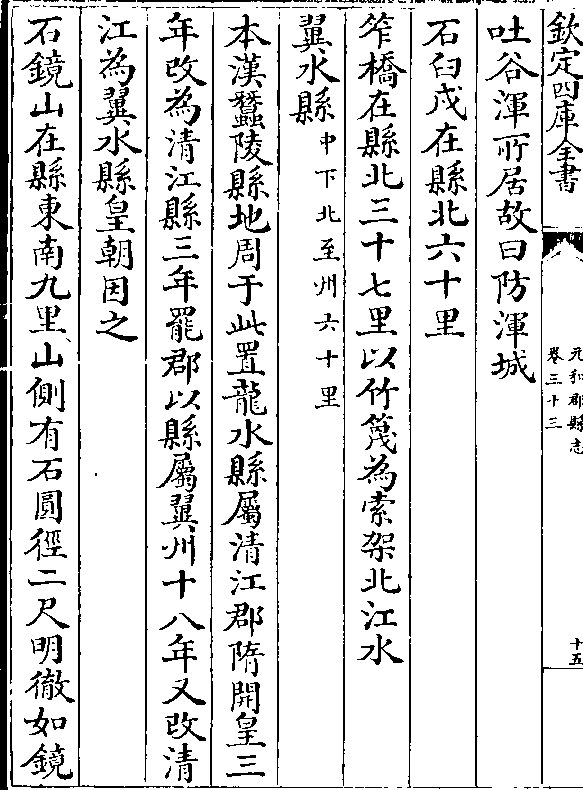 欽定四庫全書
元和郡縣志
卷三十三
十五
吐谷渾所居故曰防渾城
石臼戍在縣北六十里
笮橋在縣北三十七里以竹篾為索架北江水
翼水縣中下北至州六十里
本漢蠶陵縣地周于此置龍水縣屬清江郡隋開皇三
年改為清江縣三年罷郡以縣屬翼州十八年又改清
江為翼水縣皇朝因之
石鏡山在縣東南九里山側有石圓徑二尺明徹如鏡